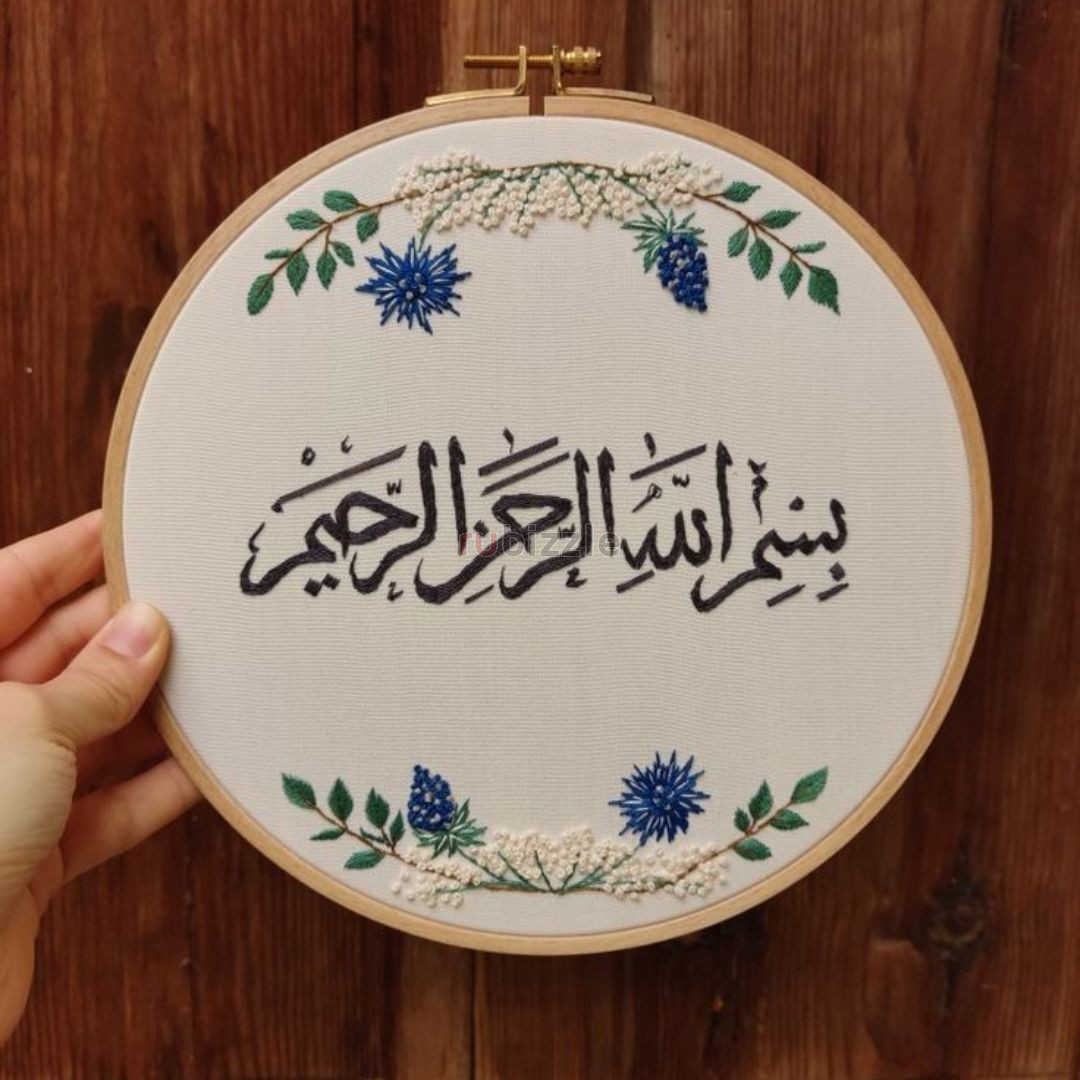 بِسْمِ اللَّهِ الرَّحْمَٰنِ الرَّحِيمِ
rubizzle